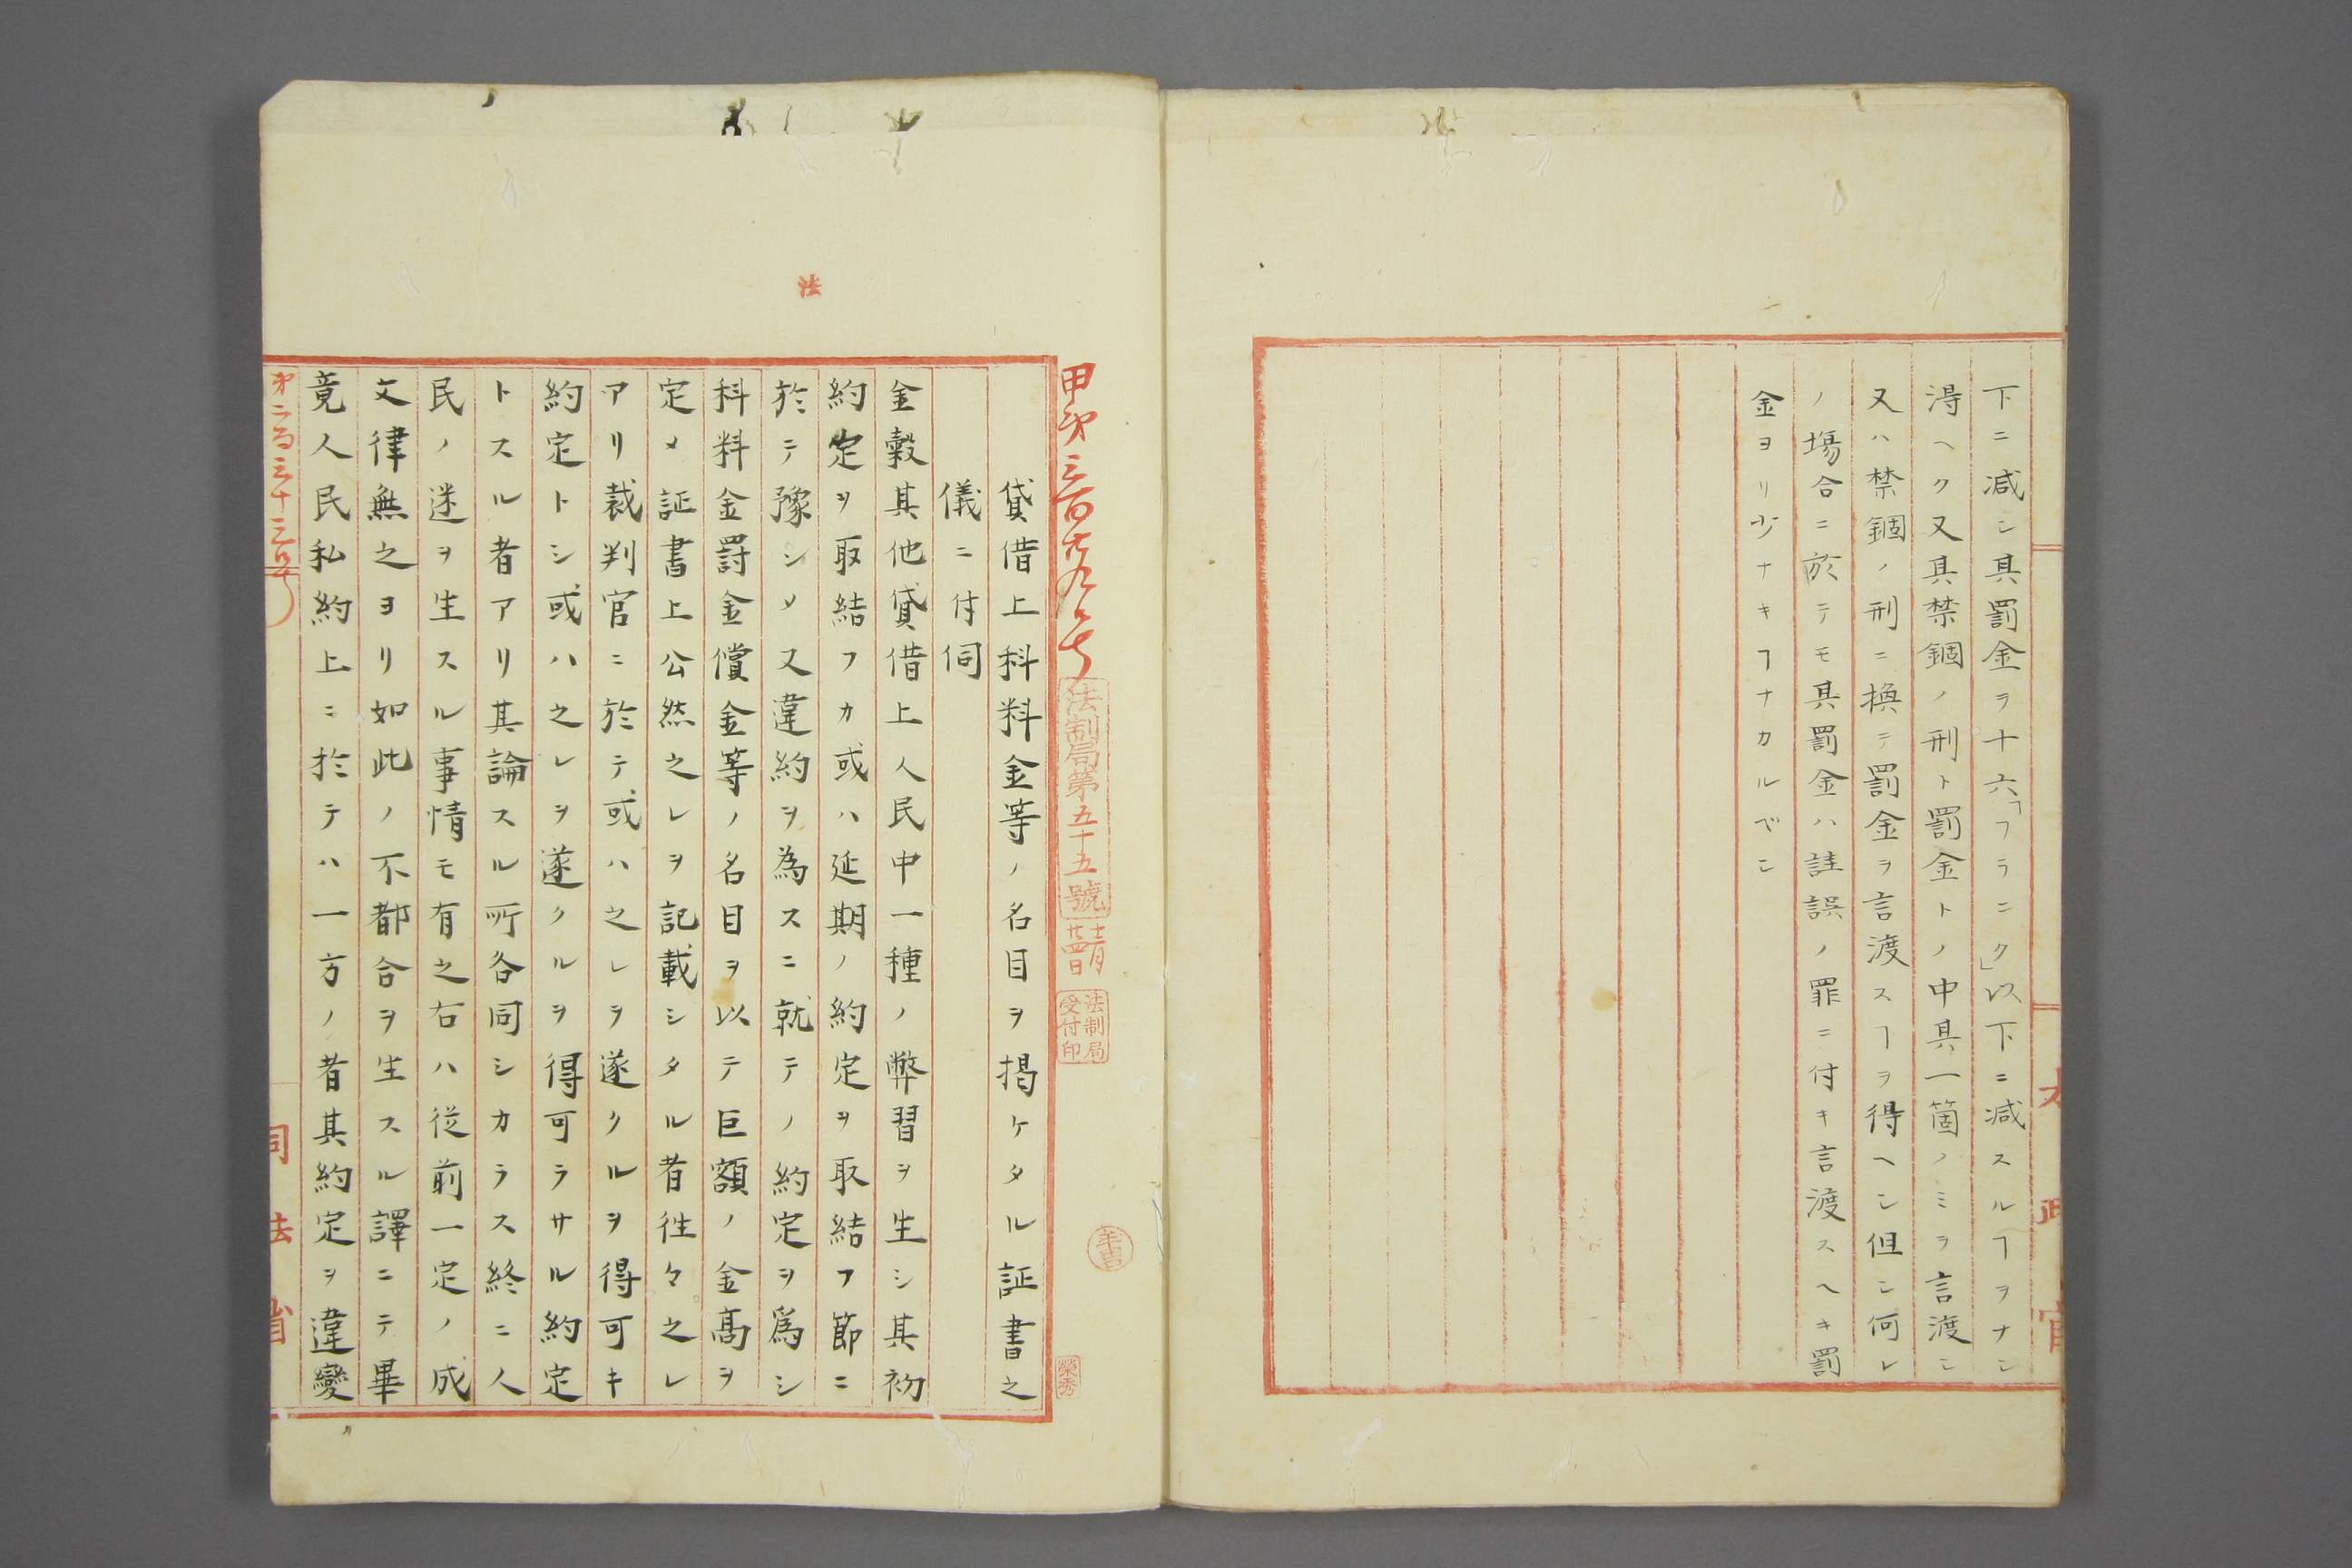 下ニ減シ其罰金ヲ十六「フランク」以下ニ減スルヿヲナシ
得ヘク又其禁錮ノ刑ト罰金トノ中其一箇ノミヲ言渡シ
又ハ禁錮ノ刑ニ換テ罰金ヲ言渡スヿヲ得ヘシ但シ何レ
ノ塲合ニ於テモ其罰金ハ註誤ノ罪ニ付キ言渡スヘキ罰
金ヨリ少ナキヿナカルベシ
法制局第五十五號
十二月廿四日
法制局受付印
榮秀
法
貸借上科料金等ノ名目ヲ掲ケタル証書之
儀ニ付伺
金糓其他貸借上人民中一種ノ弊習ヲ生シ其初
約定ヲ取結フカ或ハ延期ノ約定ヲ取結フ節ニ
於テ豫シメ又違約ヲ為スニ就テノ約定ヲ爲シ
科料金罰金償金等ノ名目ヲ以テ巨額ノ金髙ヲ
定メ証書上公然之レヲ記載シタル者徃々之レ
アリ裁判官ニ於テ或ハ之レヲ遂クルヲ得可キ
約定トシ或ハ之レヲ遂クルヲ得可ラサル約定
トスル者アリ其論スル所各同シカラス終ニ人
民ノ迷ヲ生スル事情モ有之右ハ従前一定ノ成
文律無之ヨリ如此ノ不都合ヲ生スル譯ニテ畢
竟人民私約上ニ於テハ一方ノ者其約定ヲ違變
司法省